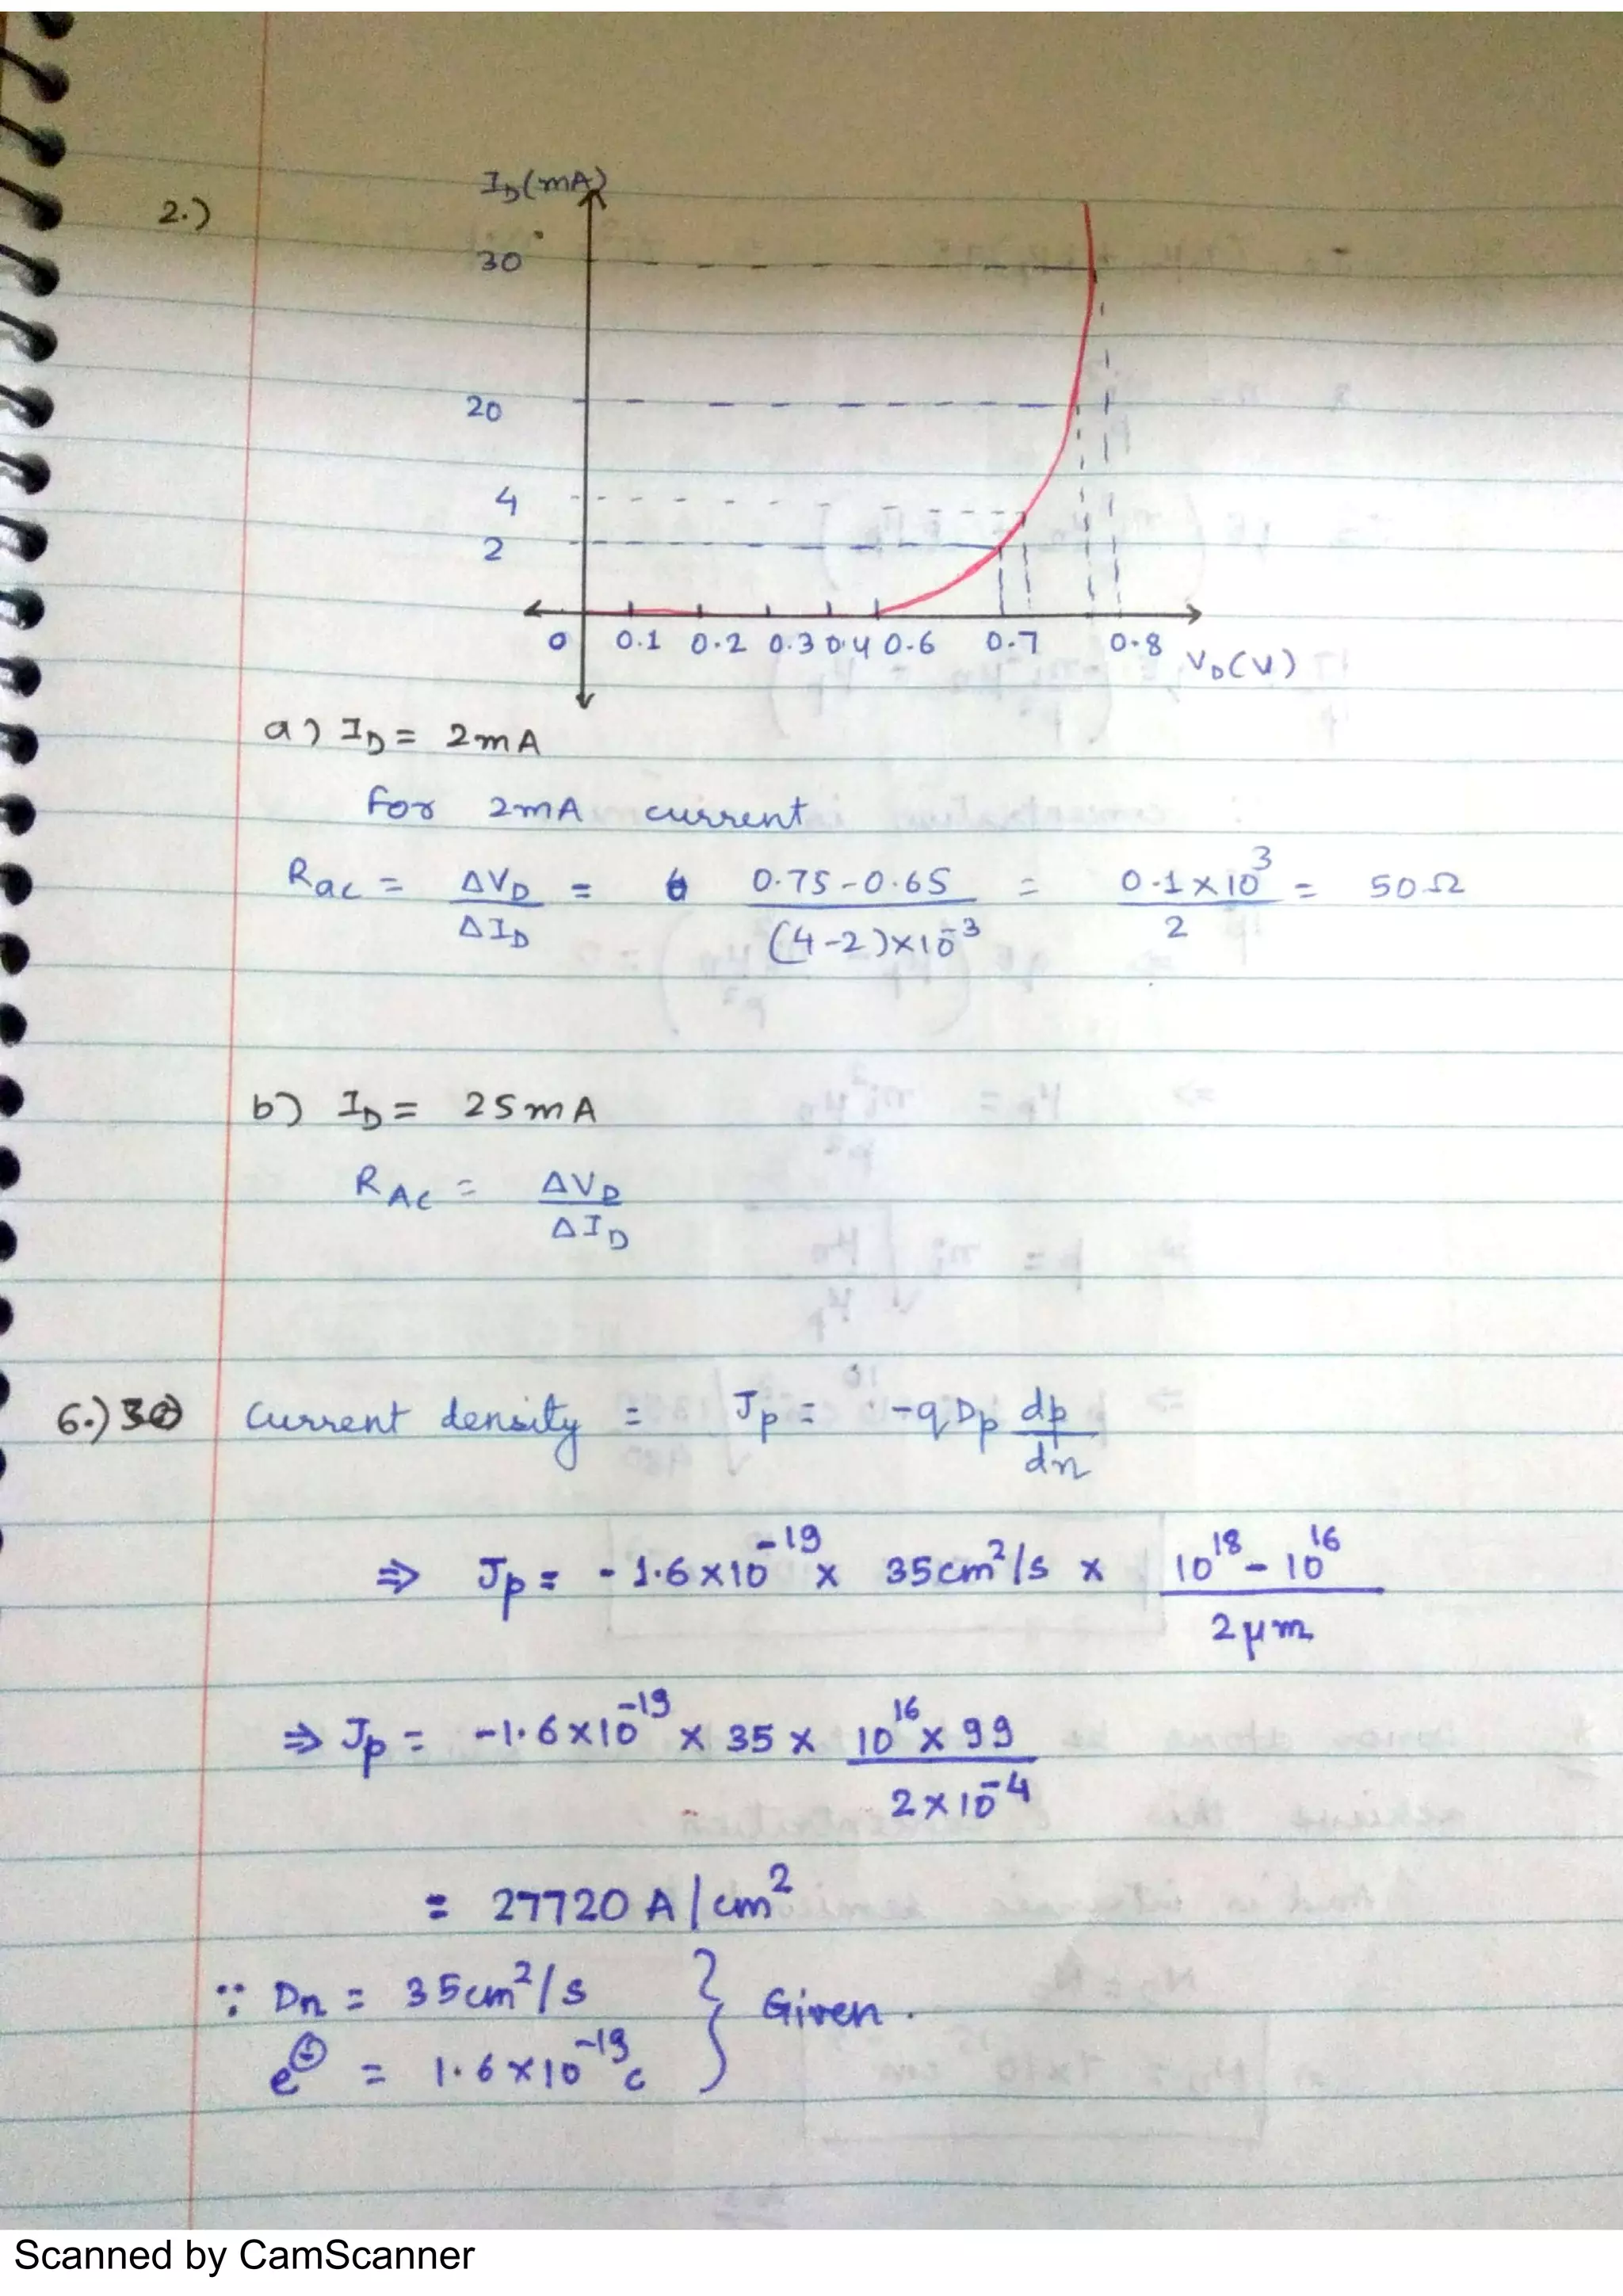 2.)
I_D(mA)
30
20
4
2
0 0.1 0.2 0.3 0.4 0.6 0.7 0.8 V_D(V)
a) I_D = 2mA
For 2mA current
R_ac = ΔV_D / ΔI_D = 0.75-0.65 / (4-2)×10^-3 = 0.1×10^3 / 2 = 50Ω
b) I_D = 25mA
R_AC = ΔV_D / ΔI_D
6.) Current density = J_p = -qD_p dp/dn
⇒ J_p = -1.6×10^-19 × 35cm^2/s × 10^18 - 10^16 / 2μm
⇒ J_p = -1.6×10^-19 × 35 × 10^16 × 99 / 2×10^-4
= 27720 A/cm^2
∵ D_n = 35cm^2/s } Given.
e^⊖ = 1.6×10^-19 c
Scanned by CamScanner